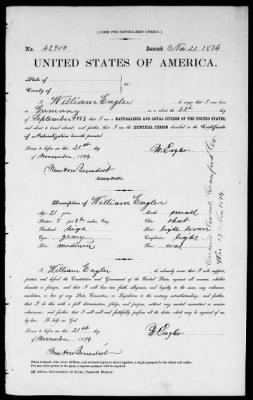 [FORM FOR NATURALIZED CITIZEN.]
No. 42900 Issued Nov 21. 1874.
UNITED STATES OF AMERICA.
State of
County of
I, William Engler do swear that I was born
in Germany on or about the 22nd day
of September that I am a NATURALIZED AND LOYAL CITIZEN OF THE UNITED STATES,
and about to travel abroad; and further, that I am the IDENTICAL PERSON described in the Certificate
of Naturalization herewith presented.
Sworn to before me this 21st day
of November, 1874. W. Engler
Description of William Engler
Age: 21 years Mouth: small
Stature: 5 feet inches, Eng. Chin: short
Forehead: high Hair: light brown
Eyes: gray Complexion: light
Nose: medium Face: oval
I, William Engler do solemnly swear that I will support,
protect, and defend the Constitution and Government of the United States against all enemies, whether
domestic or foreign; and that I will bear true faith, allegiance, and loyalty to the same, any ordinance,
resolution, or law of any State, Convention, or Legislature to the contrary notwithstanding; and further,
that I do this with a full determination, pledge, and purpose, without any mental reservation or evasion
whatsoever; and further, that I will well and faithfully perform all the duties which may be required of me
by law. So help me God.
Sworn to before me this 21st day
of November, 1874. W. Engler